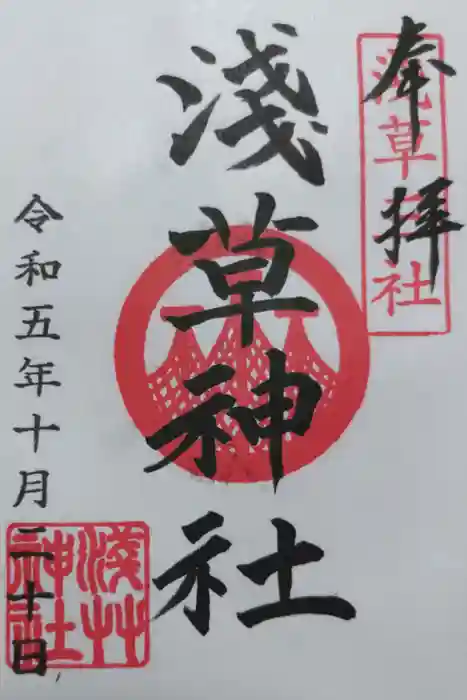 奉拝
浅草神社
淺草神社
令和五年十月二十日
淺草神社